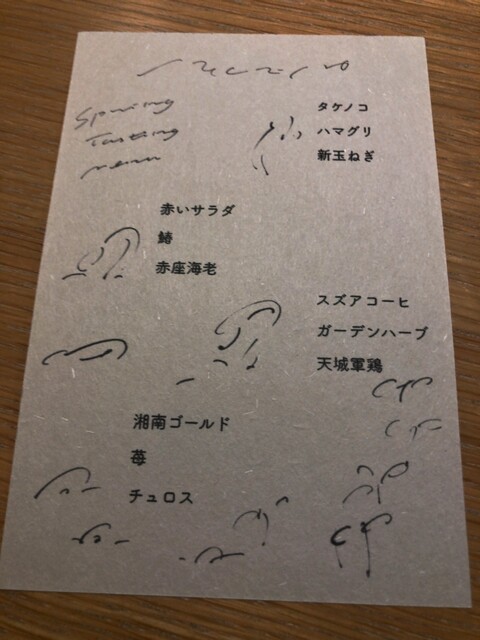 Spring
Tasting
menu
タケノコ
ハマグリ
新玉ねぎ
赤いサラダ
鰆
赤座海老
スズアコーヒ
ガーデンハーブ
天城軍鶏
湘南ゴールド
苺
チュロス